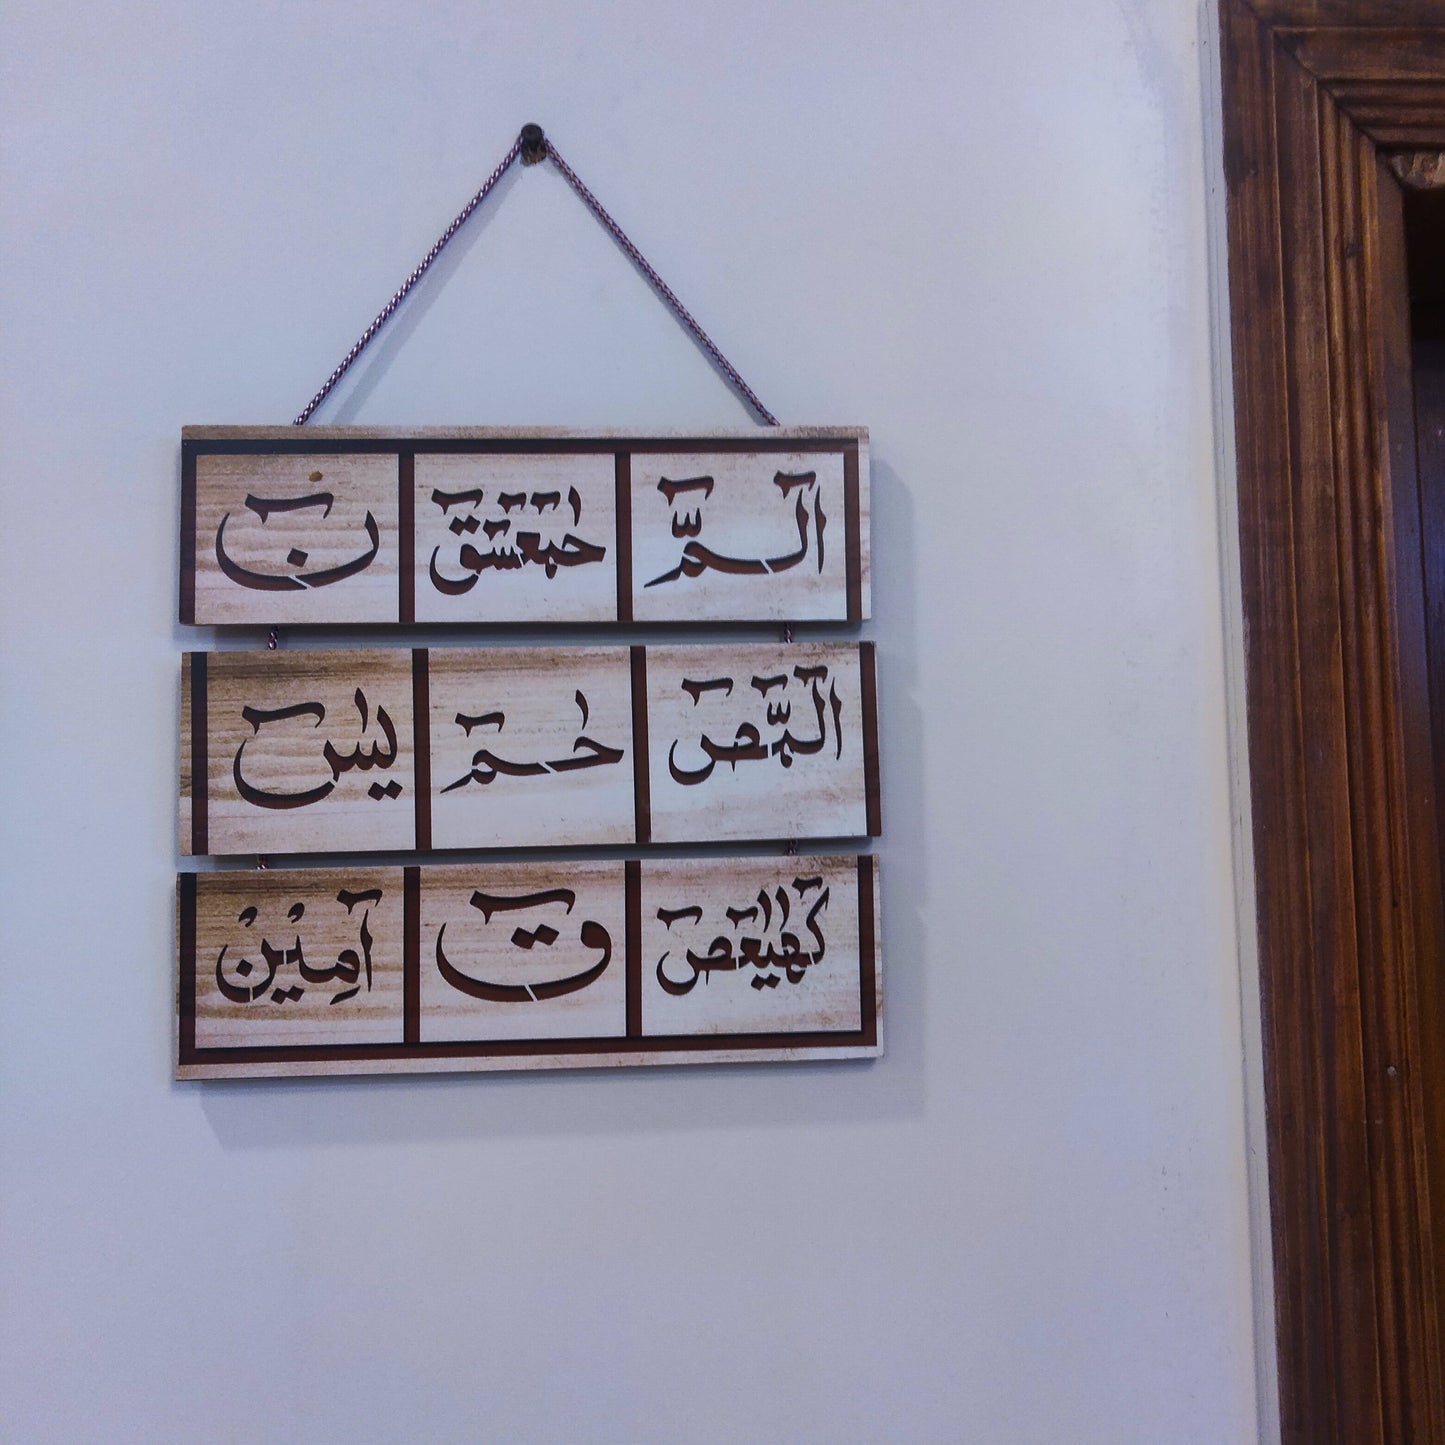 الٓـمّٓ حٰمٓعٓسٓقٓ نٓ
الٓمّٓصٓ حٰـمٓ يٰسٓ
كٓهٰيٰعٓصٓ قٓ آمِيْنْ